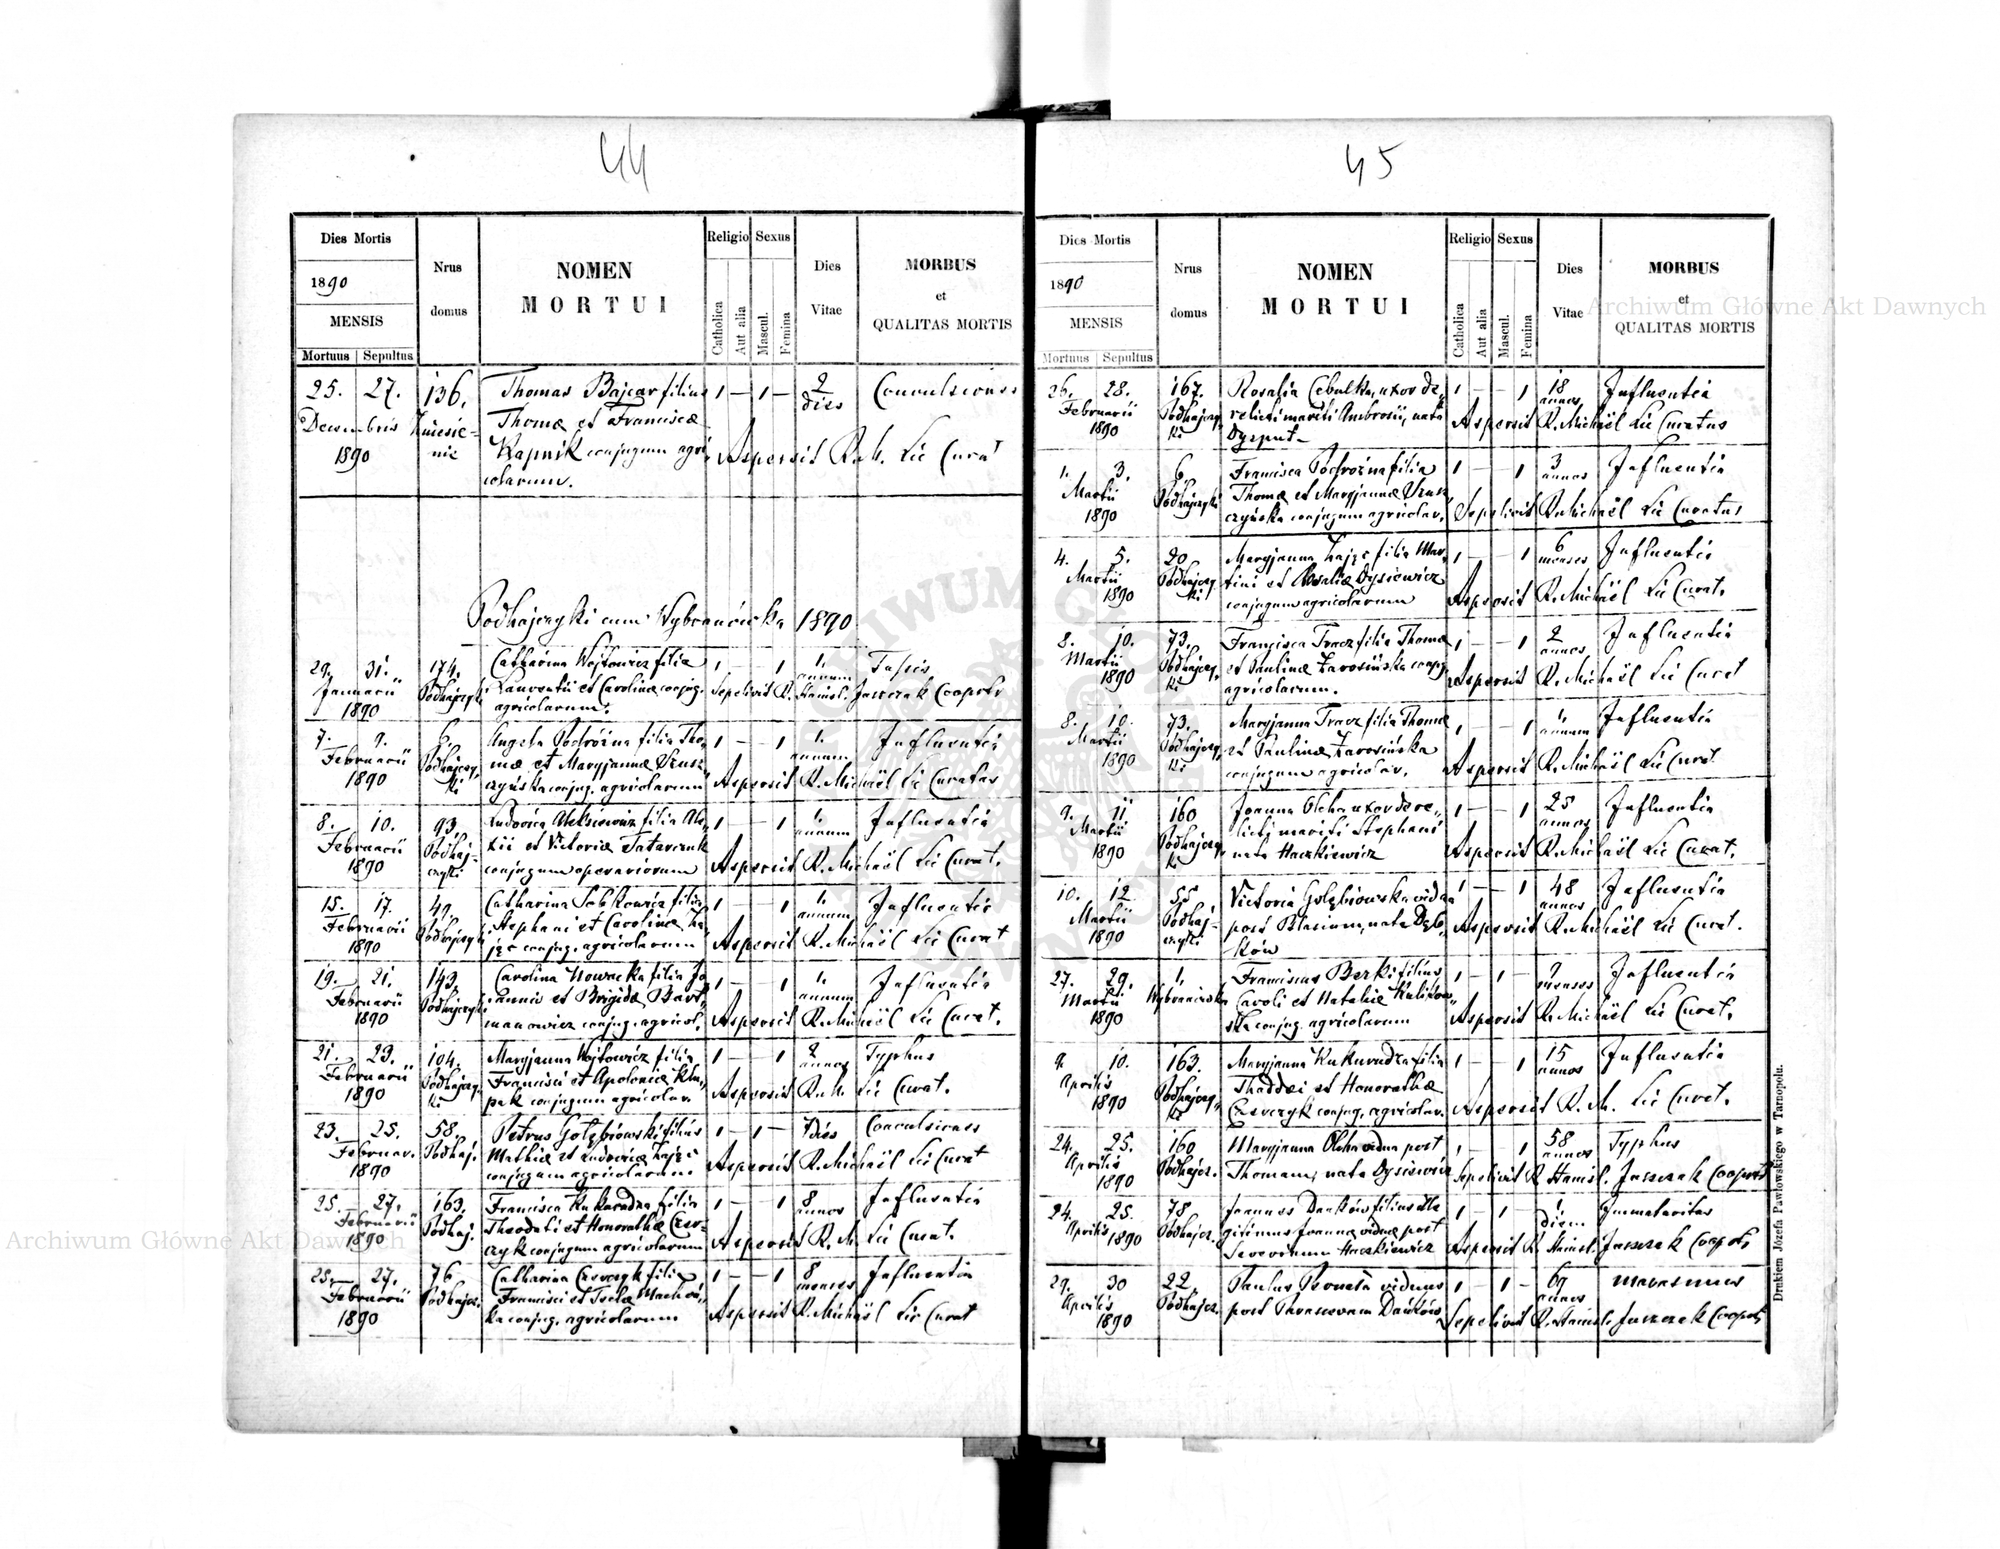 44
Dies Mortis
1890
MENSIS
Mortuus Sepultus
Nrus domus
NOMEN
MORTUI
Religio
Catholica
Aut alia
Sexus
Mascul.
Femina
Dies
Vitae
MORBUS
et
QUALITAS MORTIS
25. 27. 136. Thomas Bajcar filius 1 — 1 — 2 dies Convulsiones
Decembris Thomæ et Franciscæ
1890 Kapnik conjugum agri Aspersit R. M. Lic Curat
colarum.
Podhajczyki cum Wybranówka 1890
29. 31. 174. Catharina Wojtowicz filia 1 — — 1 1. annum Tussis
Januarii Podhajczyki Laurentii et Carolinæ conjug. Sepelivit R. Stanisl. Juszczak Cooprtr
1890 agricolarum.
7. 9. 6. Angela Podróżna filia Tho- 1 — — 1 1. annum Influentia
Februarii Podhajczy- mæ et Maryjannæ
1890 ki czyńska conjug. agricolarum Aspersit R. Michaël Lic Curatus
8. 10. 93. Ludovica Aleksiewicz filia Ale- 1 — — 1 1. annum Influentia
Februarii Podhaj- xii et Victoriæ Tatarczuk
1890 czyki conjugum operariorum Aspersit R. Michaël Lic Curat.
15. 17. 49. Catharina Sobkowicz filia 1 — — 1 1. annum Influentia
Februarii Podhajczyki Stephani et Carolinæ Za-
1890 jąc conjug. agricolarum Aspersit R. Michaël Lic Curat
19. 21. 143. Carolina Nowacka filia Jo 1 — — 1 1. annum Influentia
Februarii Podhajczyki annis et Brigidæ Bart-
1890 manowicz conjug. agricol. Aspersit R. Michaël Lic Curat.
21. 23. 104. Maryjanna Wojtowicz filia 1 — — 1 2 annos Typhus
Februarii Podhajczy- Francisci et Apoloniæ
1890 ki conjugum agricolar. Aspersit R. M. Lic Curat.
23. 25. 58. Petrus Gołębiowski filius 1 — 1 — 7 dies Convulsiones
Februar. Podhaj. Mathiæ et Ludovicæ Zając
1890 conjugum agricolarum Aspersit R. Michaël Lic Curat
25. 27. 163. Francisca Kukurudza filia 1 — — 1 8 annos Influentia
Februarii Podhaj. et Honorathæ Czer-
1890 czyk conjugum agricolarum Aspersit R. M. Lic Curat.
25. 27. 76. Catharina Czerczyk filia 1 — — 1 8 menses Influentia
Februarii Podhajcz. Francisci et Teclæ
1890 ka conjug. agricolarum Aspersit R. Michaël Lic Curat
45
Dies Mortis
1890
MENSIS
Mortuus Sepultus
Nrus domus
NOMEN
MORTUI
Religio
Catholica
Aut alia
Sexus
Mascul.
Femina
Dies
Vitae
MORBUS
et
QUALITAS MORTIS
26. 28. 167. Rosalia Cebulka, uxor de- 1 — — 1 18 annos Influentia
Februarii Podhajczy- relicti mariti Ambrosii, nata Aspersit R. Michaël Lic Curatus
1890 ki
1. 3. 6. Francisca Podróżna filia 1 — — 1 3 annos Influentia
Martii Podhajczyki Thomæ et Maryjannæ
1890 czyńska conjugum agricolar. Sepelivit R. Michaël Lic Curatus
4. 5. 20. Maryjanna Zając filia Mar- 1 — — 1 6 menses Influentia
Martii Podhajczy- tini et Rosaliæ Dysiewicz
1890 ki conjugum agricolarum Aspersit R. Michaël Lic Curat.
8. 10. 73. Francisca Tracz filia Thomæ 1 — — 1 2 annos Influentia
Martii Podhajczy- et Paulinæ Zarosińska conjg.
1890 ki agricolarum. Aspersit R. Michaël Lic Curat
8. 10. 73. Maryjanna Tracz filia Thomæ 1 — — 1 1. annum Influentia
Martii Podhajczy- et Paulinæ Zarosińska
1890 ki conjugum agricolar. Aspersit R. Michaël Lic Curat.
9. 11. 160 Joanna Olcha uxor dere- 1 — — 1 25 annos Influentia
Martii Podhajczy- licti mariti Stephani
1890 ki nata Haczkiewicz Aspersit R. Michaël Lic Curat.
10. 12. 55. Victoria Gołębiowska vidua 1 — — 1 48 annos Influentia
Martii Podhaj- post Blasium, nata Dęb-
1890 czyki ków Aspersit R. Michaël Lic Curat.
27. 29. 1. Franciscus Berki filius 1 — 1 — 9 menses Influentia
Martii Wybranówka Caroli et Nataliæ Kulikow-
1890 ska conjug. agricolarum Aspersit R. Michaël Lic Curat.
9. 10. 163. Maryjanna Kukurudza filia 1 — — 1 15 annos Influentia
Aprilis Podhajczy- Thaddæi et Honorathæ
1890 ki Czerczyk conjug. agricolar. Aspersit R. M. Lic Curat.
24. 25. 160 Maryjanna Olcha vidua post 1 — — 1 58 annos Typhus
Aprilis Podhajcz. Thomam, nata Dysiewicz
1890 Sepelivit R. Stanisl. Juszczak Cooprtr
24. 25. 78 Joannes Dańków filius ille 1 — 1 — 1. diem Immaturitas
Aprilis Podhajcz. gitimus Joannæ viduæ post
1890 Severinum Haczkiewicz Aspersit R. Stanisl. Juszczak Cooprtr
29. 30 22. Paulus viduus 1 — 1 — 69 annos marasmus
Aprilis Podhajcz. post Dańków
1890 Sepelivit R. Stanisl. Juszczak Cooprtr
Drukiem Józefa Pawłowskiego w Tarnopolu.
Archiwum Główne Akt Dawnych
Archiwum Główne Akt Dawnych